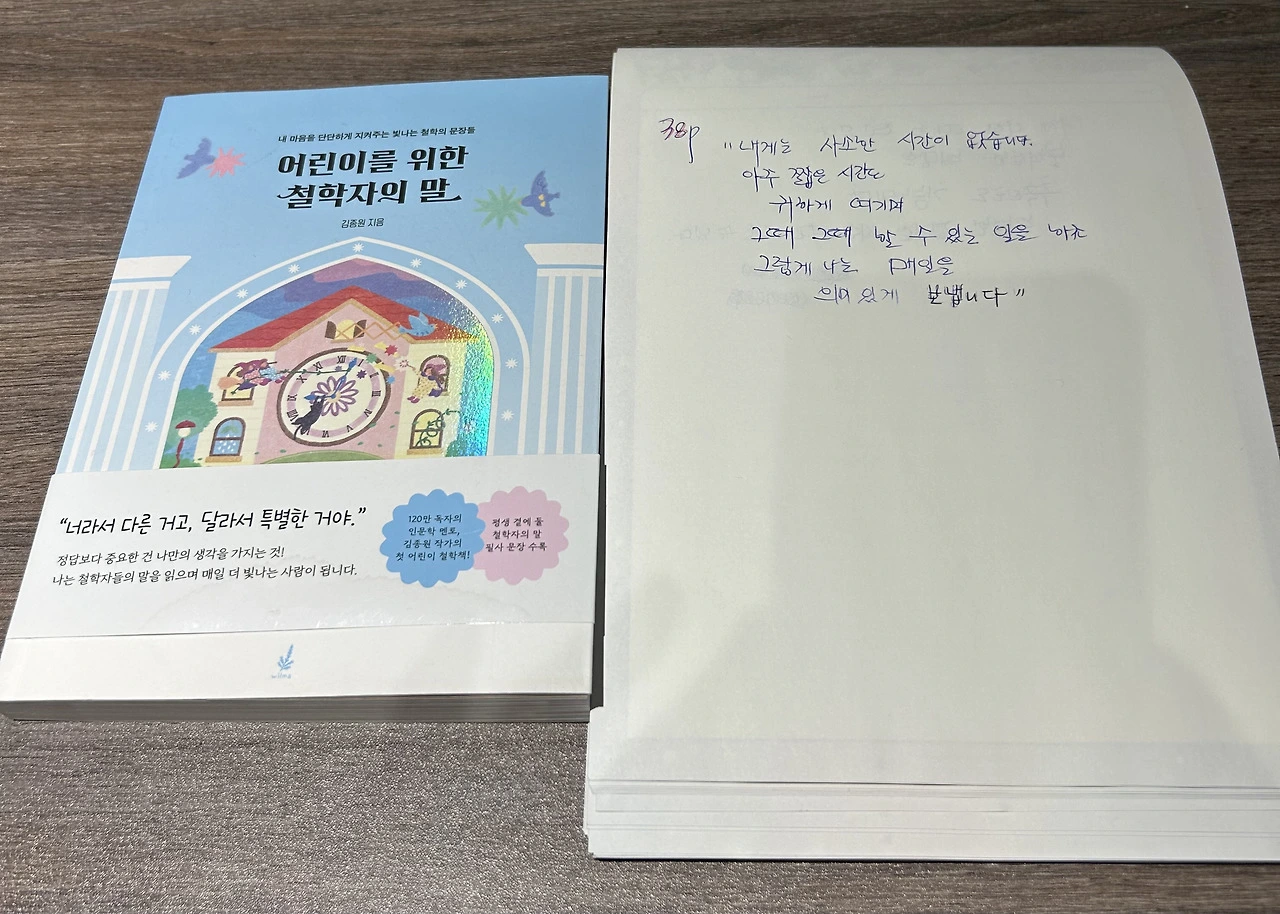 내 마음을 단단하게 지켜주는 빛나는 철학의 문장들
어린이를 위한
철학자의 말
김종원 지음
“너라서 다른 거고, 달라서 특별한 거야.”
정답보다 중요한 건 나만의 생각을 가지는 것!
나는 철학자들의 말을 읽으며 매일 더 빛나는 사람이 됩니다.
120만 독자의
인문학 멘토,
김종원 작가의
첫 어린이 철학책!
평생 곁에 둘
철학자의 말
필사 문장 수록
38p
"내게는 사소한 시간이 없습니다.
아주 짧은 시간도
귀하게 여기며
그때 그때 할 수 있는 일을 하죠
그렇게 나는 매일을
의미 있게 보냅니다"